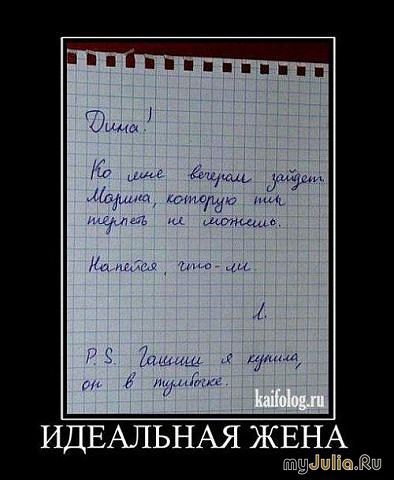 Дима!
Ко мне вечером зайдет
Марина, которую ты
терпеть не можешь.
Напейся, что-ли.
Л.
P.S. Гашиш я купила,
он в тумбочке.
kaifolog.ru
ИДЕАЛЬНАЯ ЖЕНА
myJulia.Ru